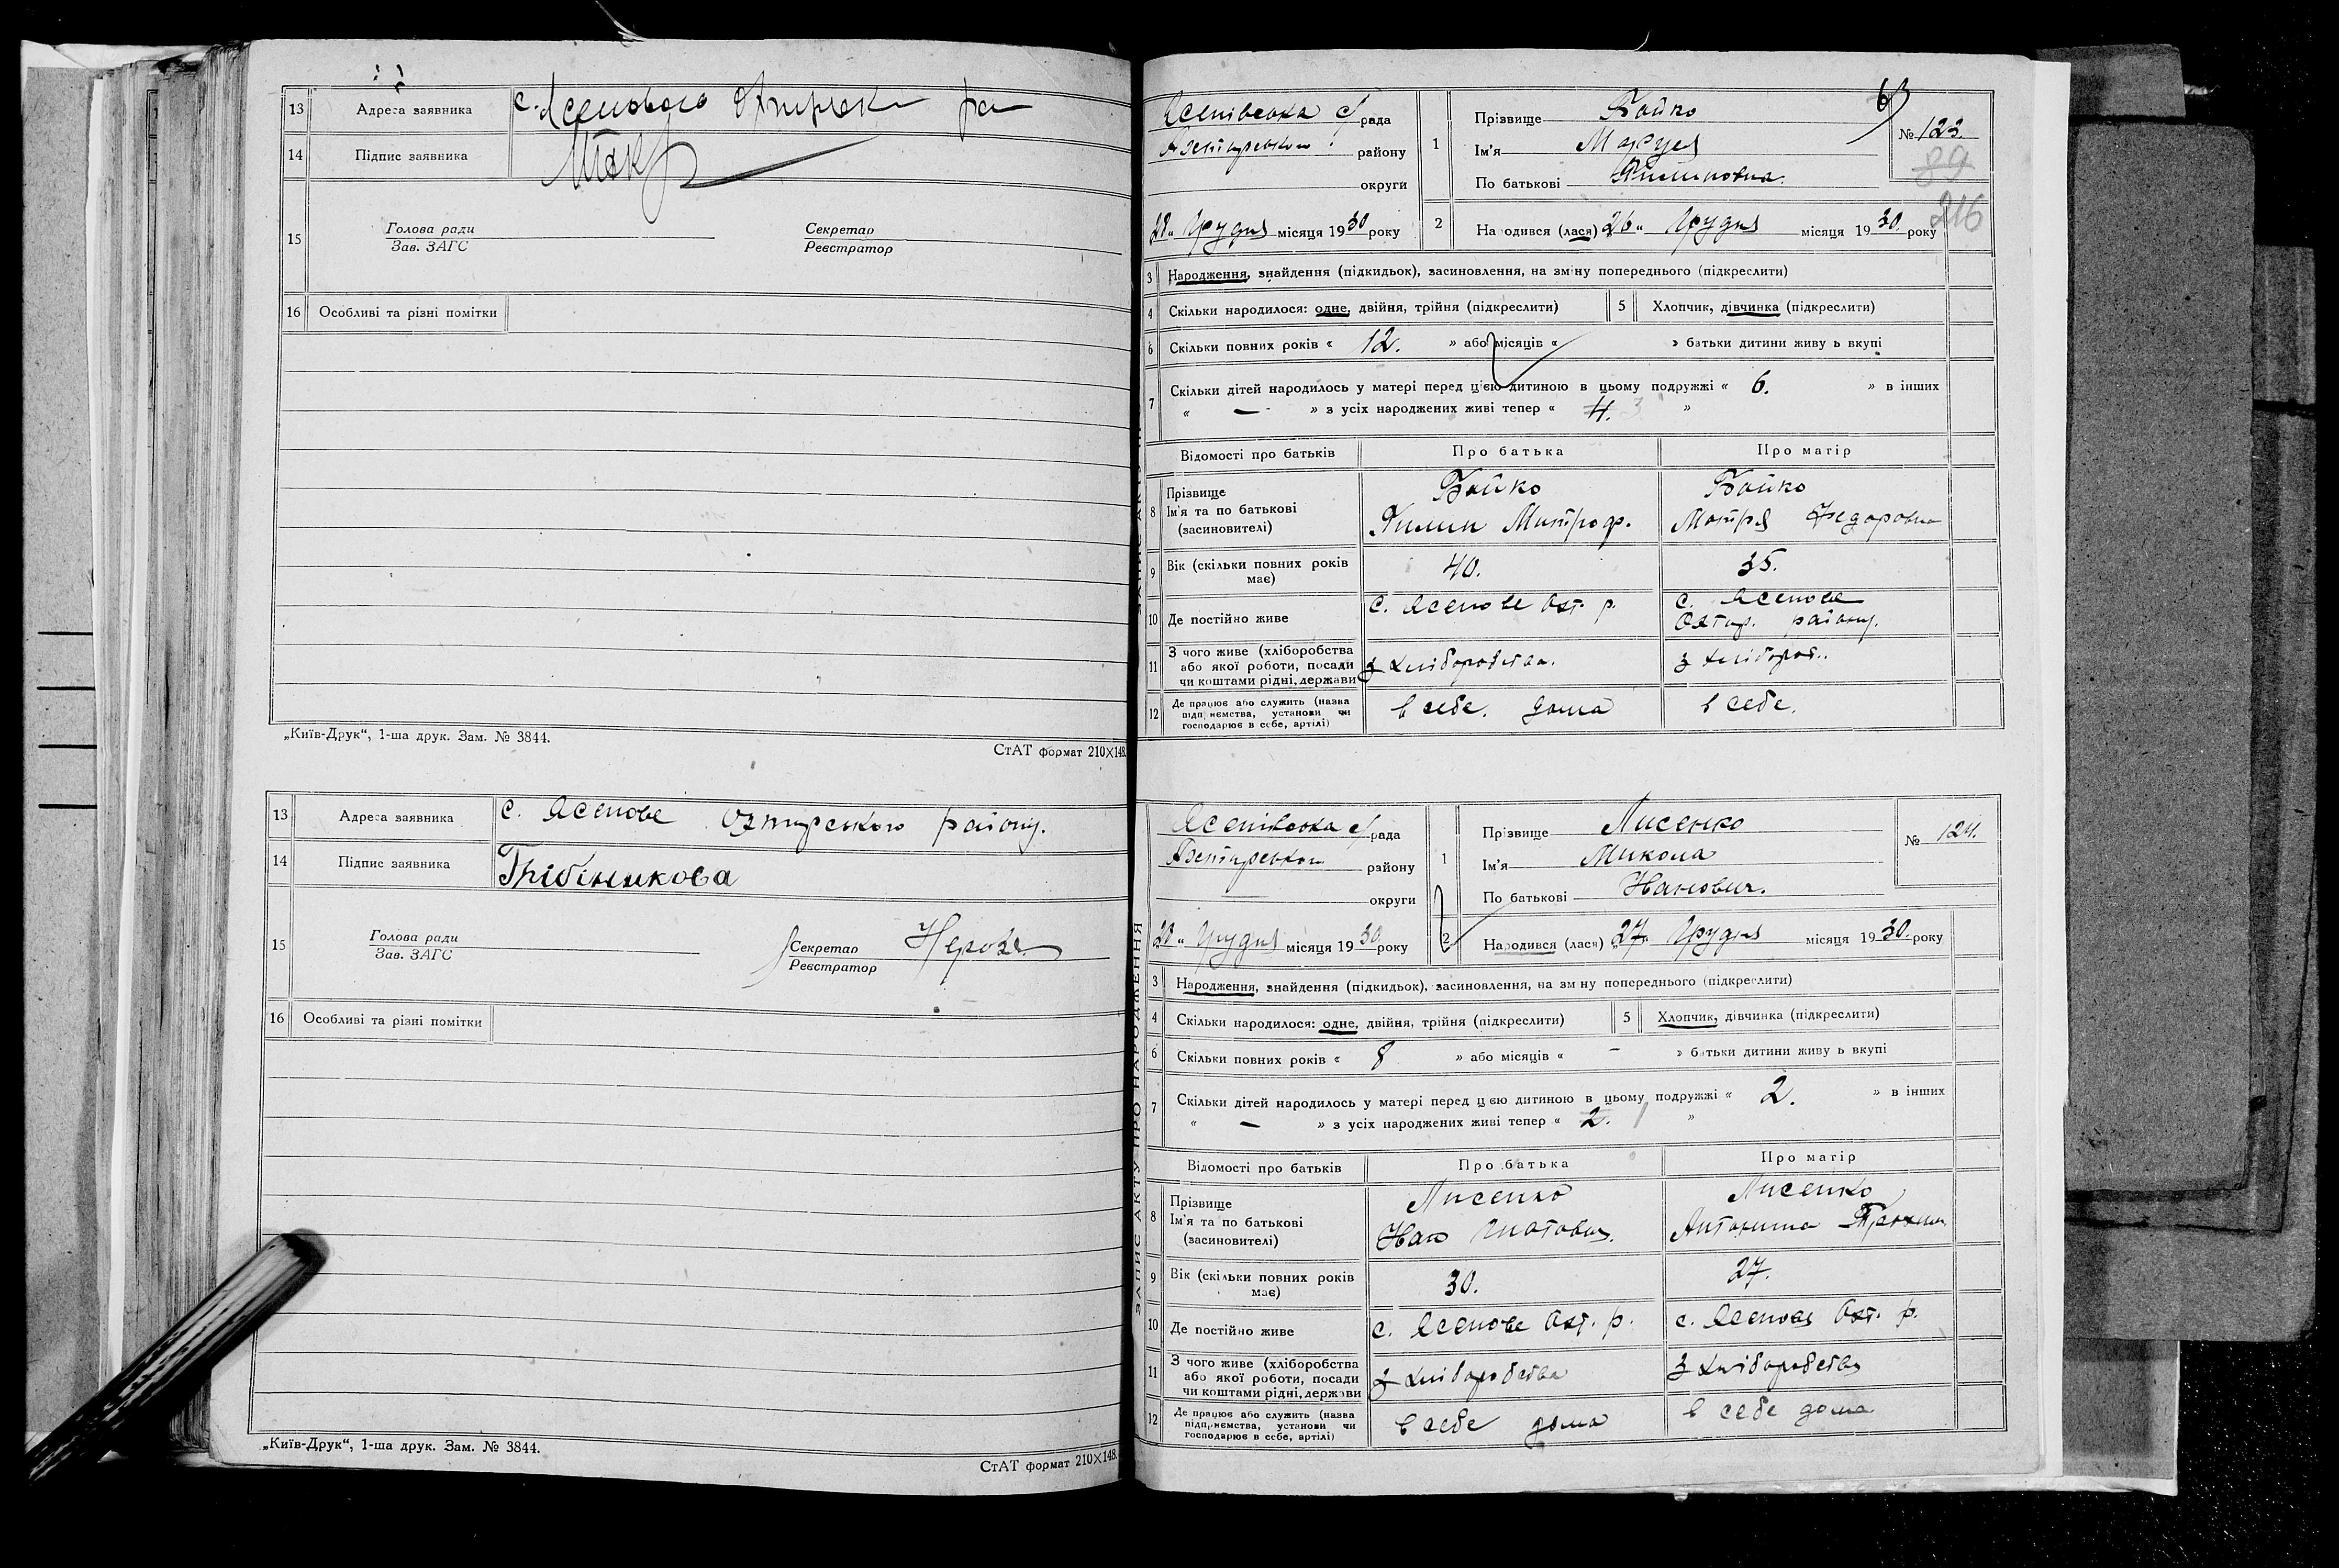 13 Адреса заявника с. Ясенового Охтирськ р-н
14 Підпис заявника
15 Голова ради Секретар
Зав. ЗАГС Реєстратор
16 Особливі та різні помітки
„Київ-Друк“, 1-ша друк. Зам. № 3844.
СтАТ формат 210×148.
13 Адреса заявника с. Ясенове Охтирського району.
14 Підпис заявника
15 Голова ради Секретар
Зав. ЗАГС Реєстратор
16 Особливі та різні помітки
„Київ-Друк“, 1-ша друк. Зам. № 3844.
СтАТ формат 210×148.
63
Ясенівська с/рада
району
округи
28 „ Грудня місяця 1930 року
1 Прізвище Бойко
Ім'я Маруся
По батькові Пилиповна.
№ 123.
89
216
2 Народився (лася) 26 „ Грудня місяця 1930. року
3 Народження, знайдення (підкидьок), засиновлення, на зміну попереднього (підкреслити)
4 Скільки народилося: одне, двійня, трійня (підкреслити) 5 Хлопчик, дівчинка (підкреслити)
6 Скільки повних років « 12. » або місяців « » батьки дитини живуть вкупі
7 Скільки дітей народилось у матері перед цією дитиною в цьому подружжі « 6. » в інших
« — » з усіх народжених живі тепер « 4. 3 »
Відомості про батьків Про батька Про матір
8 Прізвище Бойко Бойко
Ім'я та по батькові Пилип Митроф. Мотря Федоровна
(засиновителі)
9 Вік (скільки повних років має) 40. 35.
10 Де постійно живе с. Ясенове Охт. р. с. Ясенове
Охтир. району.
11 З чого живе (хліборобства
або якої роботи, посади з хліборобства. з хлібороб..
чи коштами рідні, держави
12 Де працює або служить (назва
підприємства, установи чи в себе. дома в себе.
господарює в себе, артілі)
ЗАПИС АКТУ ПРО НАРОДЖЕННЯ
Ясенівська с/рада
Охтирського району
округи
28 „ Грудня місяця 1930 року
1 Прізвище Лисенко
Ім'я Микола
По батькові Иванович.
№ 124.
2 Народився (лася) „27„ Грудня місяця 1930. року
3 Народження, знайдення (підкидьок), засиновлення, на зміну попереднього (підкреслити)
4 Скільки народилося: одне, двійня, трійня (підкреслити) 5 Хлопчик, дівчинка (підкреслити)
6 Скільки повних років « 8 » або місяців « – » батьки дитини живуть вкупі
7 Скільки дітей народилось у матері перед цією дитиною в цьому подружжі « 2. » в інших
« — » з усіх народжених живі тепер « 2. 1 »
Відомості про батьків Про батька Про матір
8 Прізвище Лисенко Лисенко
Ім'я та по батькові Иван
(засиновителі)
9 Вік (скільки повних років має) 30. 27.
10 Де постійно живе с. Ясенове Охт. р. с. Ясенове Охт. р.
11 З чого живе (хліборобства
або якої роботи, посади з хліборобства з хліборобства
чи коштами рідні, держави
12 Де працює або служить (назва
підприємства, установи чи в себе дома в себе дома
господарює в себе, артілі)